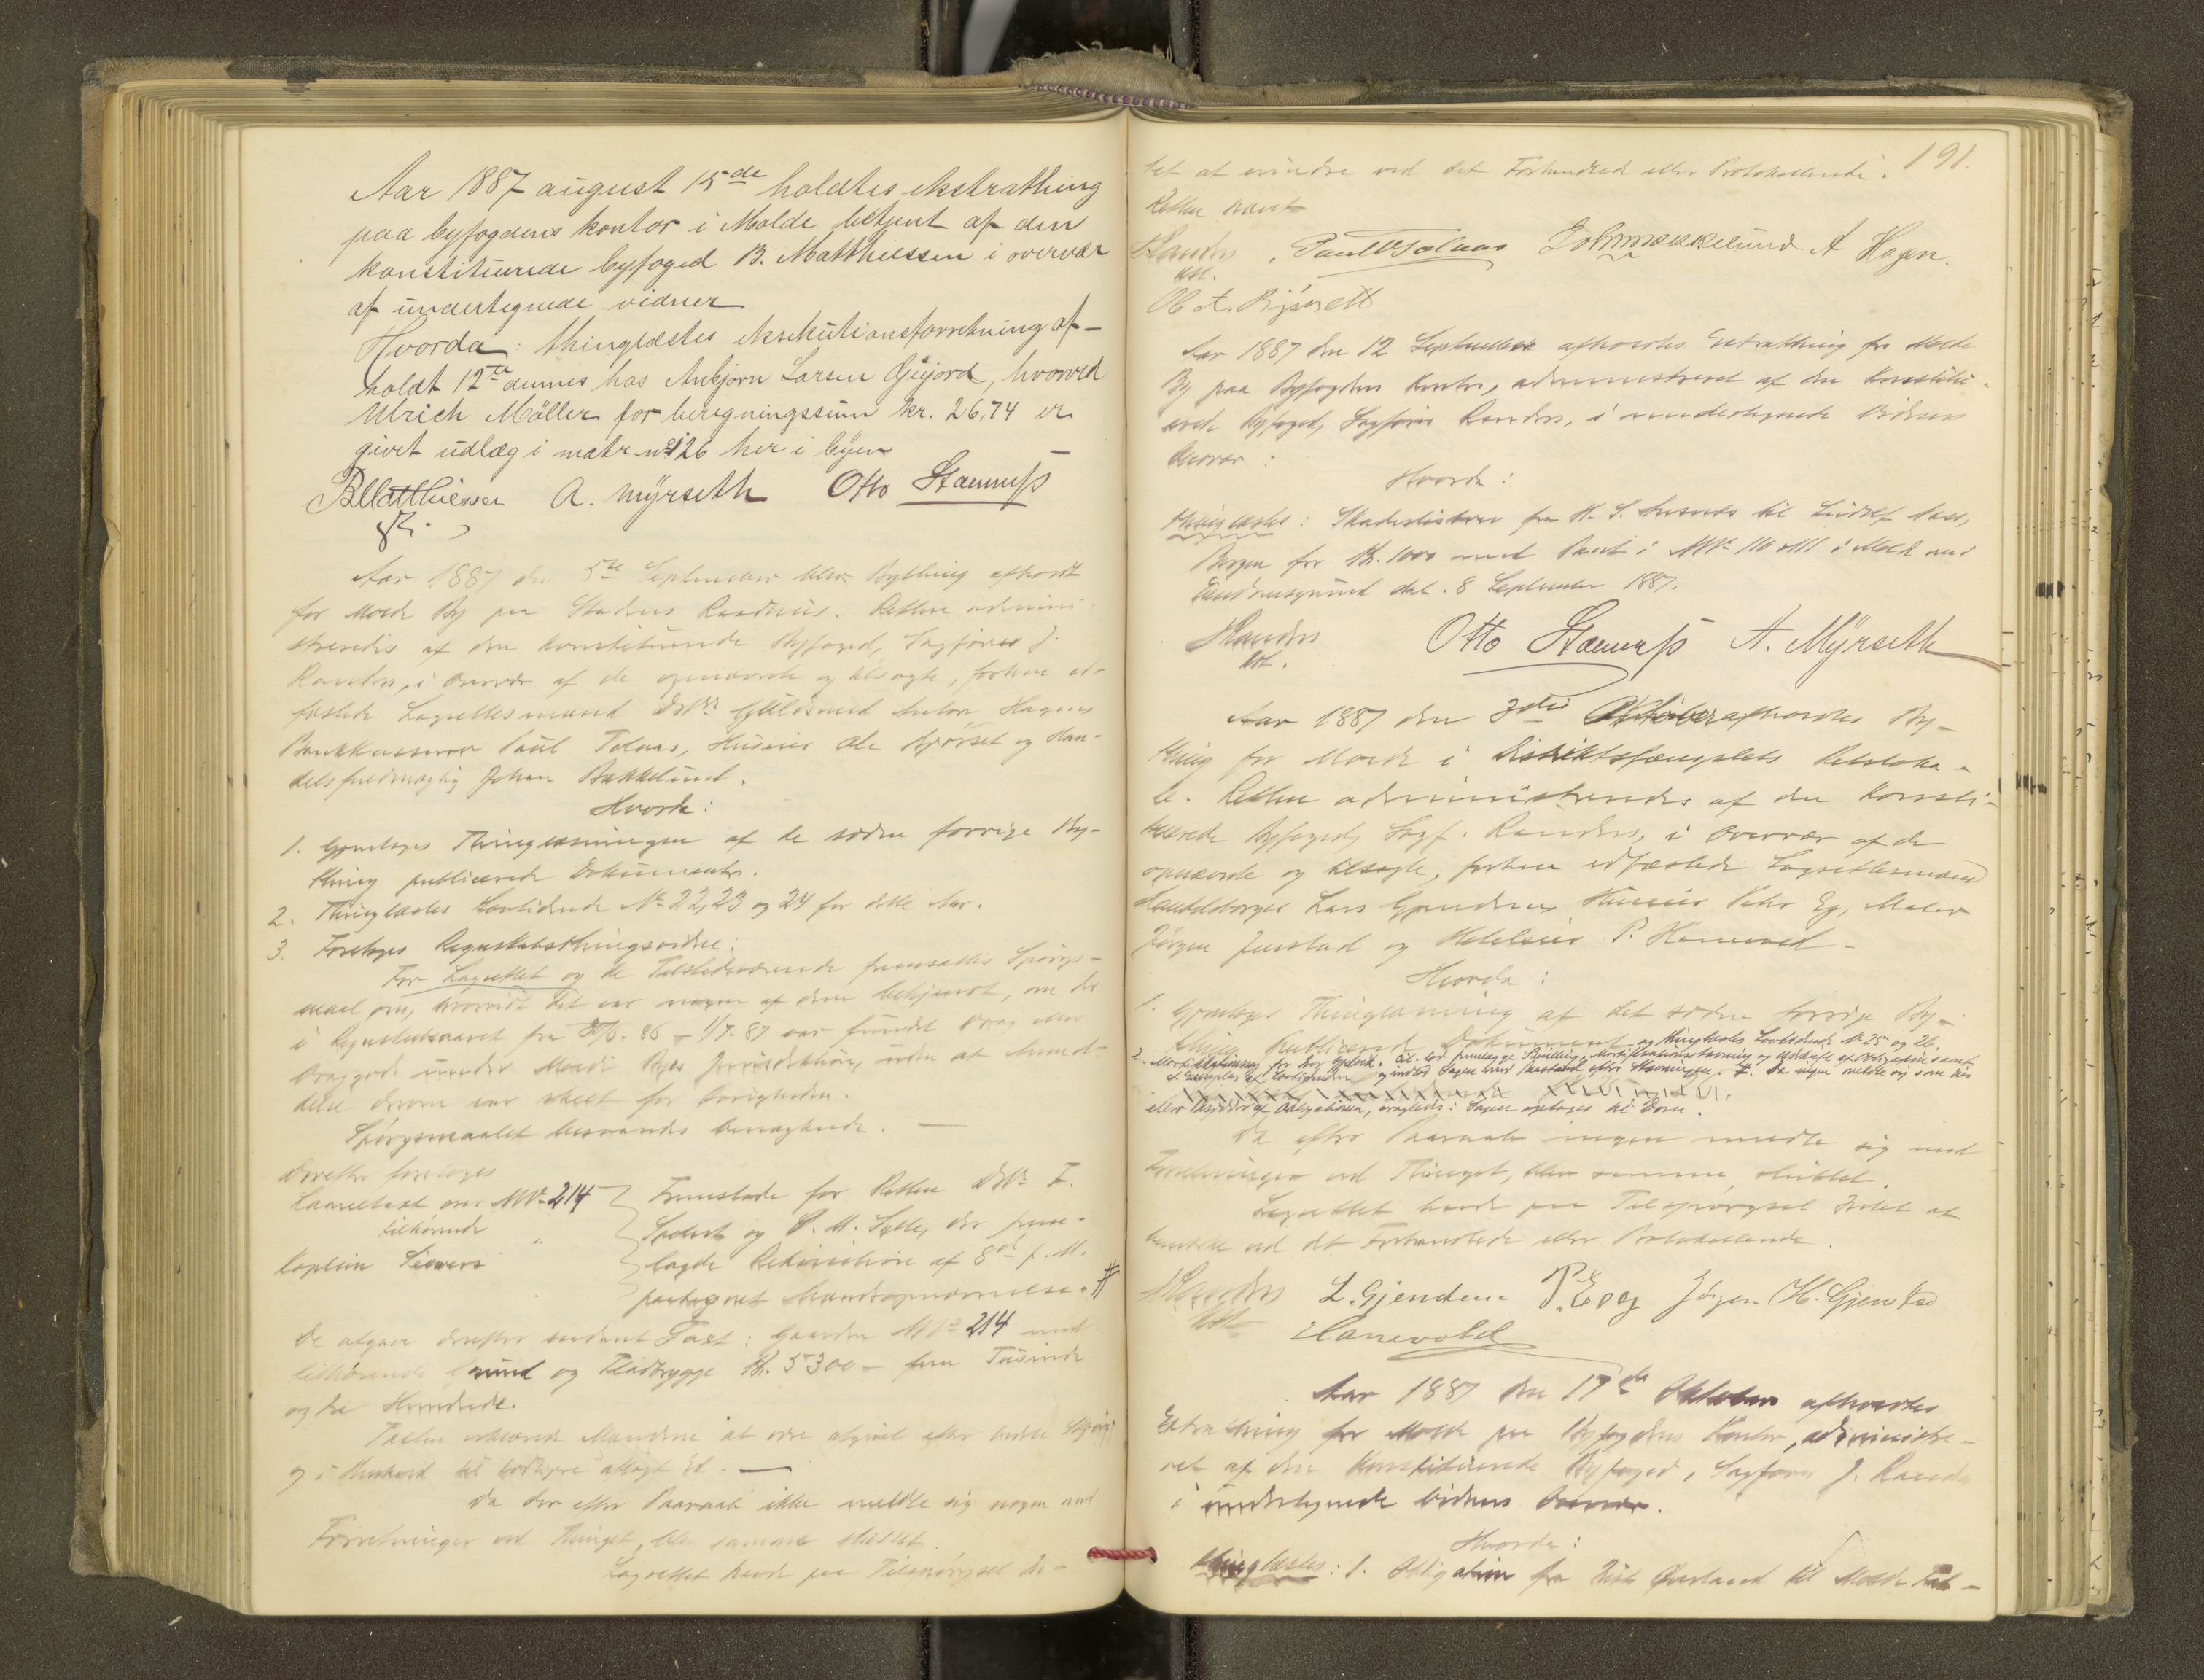 Aar 1887 august 15de holdtes ekstrathing
paa byfogdens kontor i Molde betjent af den
konstituerede byfoged B. Matthiessen i overvær
af undertegnede vidner
Hvorda: thinglæstes eksekutionsforretning af-
holdt 12te dennes hos Anbjørn Larsen Gujord, hvorved
Ulrich Möller for beregningssum kr. 26,74 er
givet udlæg i matr. no 126 her i byen
BMatthiessen A. Myrseth Otto Stamnss
kst.
Aar 1887 den 5te September blev Bything afholdt
for Molde By paa Stadens Raadhus. Retten admini-
streredes af den konstituerede Byfoged, Sagfører J.
Randers, i Overvær af de opnævnte og tilsagte, forhen ed-
fæstede Lagrettesmænd DHrr Guldsmed Anton Hagen
Bankkasserer Paul Tolaas, Huseier Ole Bjørset og Han-
delsfuldmægtig Johan Bakkelund.
Hvorda:
1. Gjentoges Thinglæsningen af de siden forrige By-
thing publicerede Dokumenter.
2. Thinglæstes Lovtidende No 22, 23 og 24 for dette Aar.
3. Foretoges Regnskabsthingsvidne:
For Lagrettet og de Tilstedeværende fremsattes Spørgs-
maal om, hvorvidt det var nogen af dem bekjendt, om der
i Regnskabsaaret fra 30/6. 86 - 1/7. 87 var fundet Vrag eller
Vraggods under Molde Byes Jurisdiktion, uden at Anmel-
delse derom var skeet for Øvrigheden.
Spørgsmaalet besvaredes benægtende. —
Derefter foretoges
Laanetaxt over MNo 214
tilhørende
Kaptein Sievers
Fremstode for Retten DHrr F.
og P. M. der frem-
lagde Rekvisition af 8de f. M.
paategnet Mandsopnævnelse. #
De afgave derefter saadant Taxt: Gaarden MNo 214 med
tilhørende Grund og Flaadbrygge Kr. 5300 - fem Tusinde
og tre Hundrede.
Taxten erklærede Mændene at være afgivet efter bedste Skjøn
og i Henhold til tidligere aflagt Ed. —
Da der efter Paaraab ikke meldte sig nogen med
Forretninger ved Thinget, blev samme sluttet.
Lagrettet havde paa Tilspørgsel In-
191.
tet at erindre ved det Forhandlede eller Protokollerede.
Retten hævet
JRanders Paul Tolaas JohanBakkelund A Hagen.
kst.
Ole A. Bjørsett
Aar 1887 den 12 September afholdtes Extrathing for Molde
By paa Byfogdens Kontor, administreret af den konstitu-
erede Byfoged, Sagfører Randers, i undertegnede Vidners
Overvær:
Hvorda:
Thinglæstes: Skadesløsbrev fra H. S. til Ludolf
Bergen for Kr. 1000 med Pant i MNo 110 & 111 i Molde med
dat. 8 September 1887.
JRanders Otto Stamnss A. Myrseth
kst.
Aar 1887 den 3die Oktober afholdtes By-
thing for Molde i Distriktsfængslets Retsloka-
le. Retten administreredes af den konsti-
tuerede Byfoged, Sagf. Randers, i Overvær af de
opnævnte og tilsagte, forhen edfæstede Lagrettesmænd
Handelsborger Lars Gjendem, Huseier Peder Eeg, Maler
Jørgen Gjenstad og Hoteleier P. Hanevold -
Hvorda:
1. Gjentoges Thinglæsning af det siden forrige By-
thing publicerede Dokument og thinglæstes Lovtidende No 25 og 26.
2. Mortifikationssag for Cit. lod fremlægge Bevilling, Mortifikationsstævning og Udskrift af Obligation samt
et Exemplar af Lovtidenden og indlod Sagen under Paastand efter Stævningen. #. Da ingen meldte sig som Eier
eller Besidder af Obligationen, eragtedes: Sagen optages til Dom.
Da efter Paaraab ingen meldte sig med
Forretninger ved Thinget, blev samme sluttet.
Lagrettet havde paa Tilspørgsel Intet at
bemærke ved det Forhandlede eller Protokollerede.
JRanders L. Gjendem P. Eeg Jørgen H. Gjenstad
kst Hanevold
Aar 1887 den 17de Oktober afholdtes
Extrathing for Molde paa Byfogdens Kontor, administre-
ret af den konstituerede Byfoged, Sagfører J. Randers
i undertegnede Vidners Overvær.
Hvorda:
Thinglæstes: 1. Obligation fra til Molde